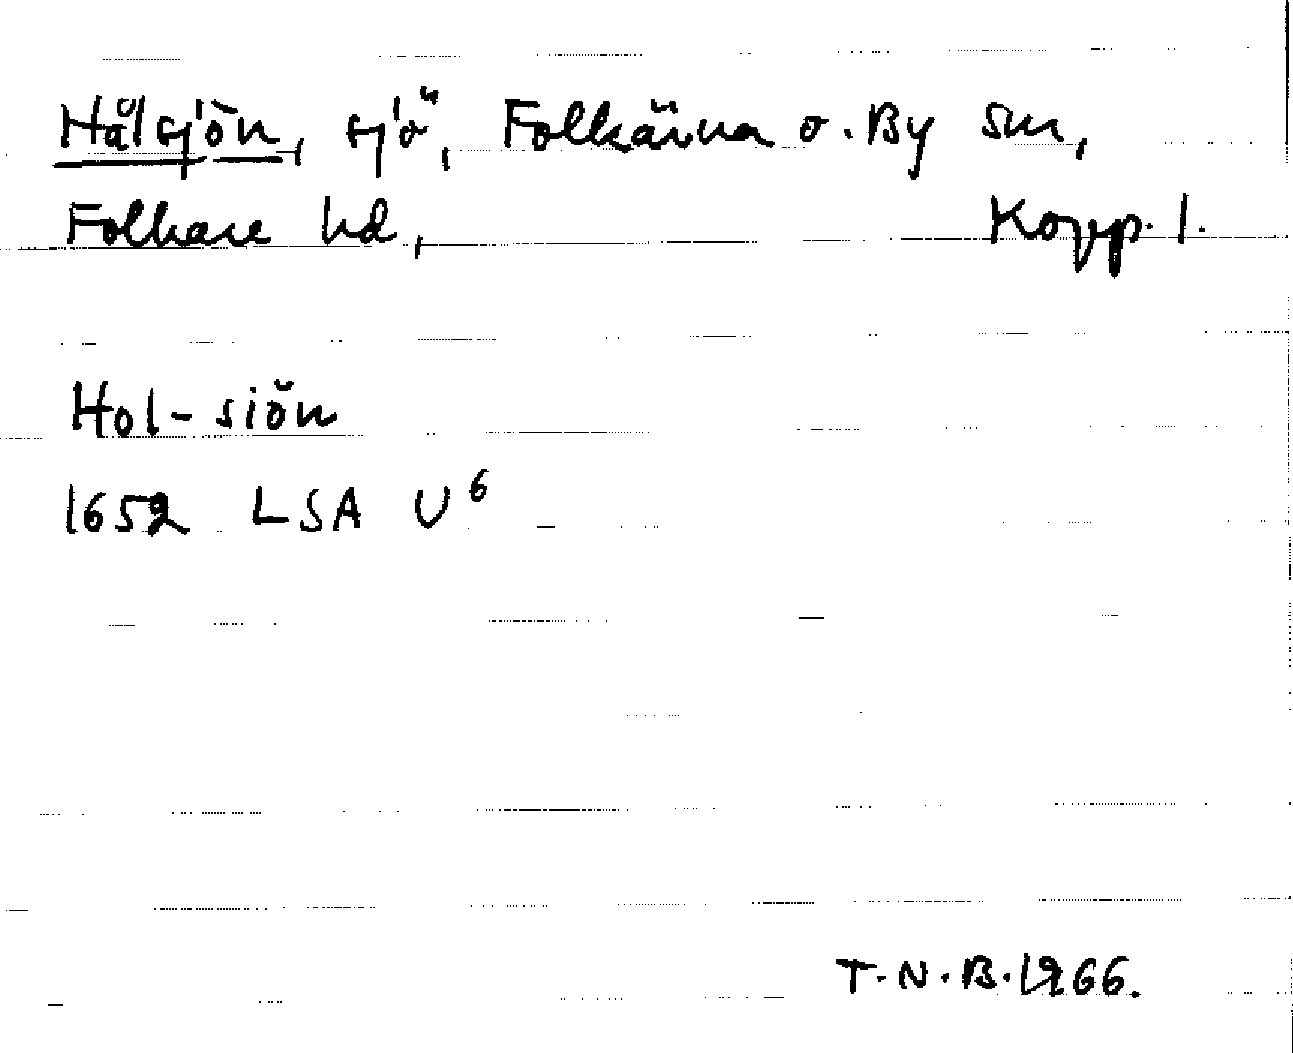 Hålsjön, sjö, Folkärna o. By snr,
Folkare hd, Kopp. l.
Hol-siön
1652 LSA U⁶
T.N.B. 1966.